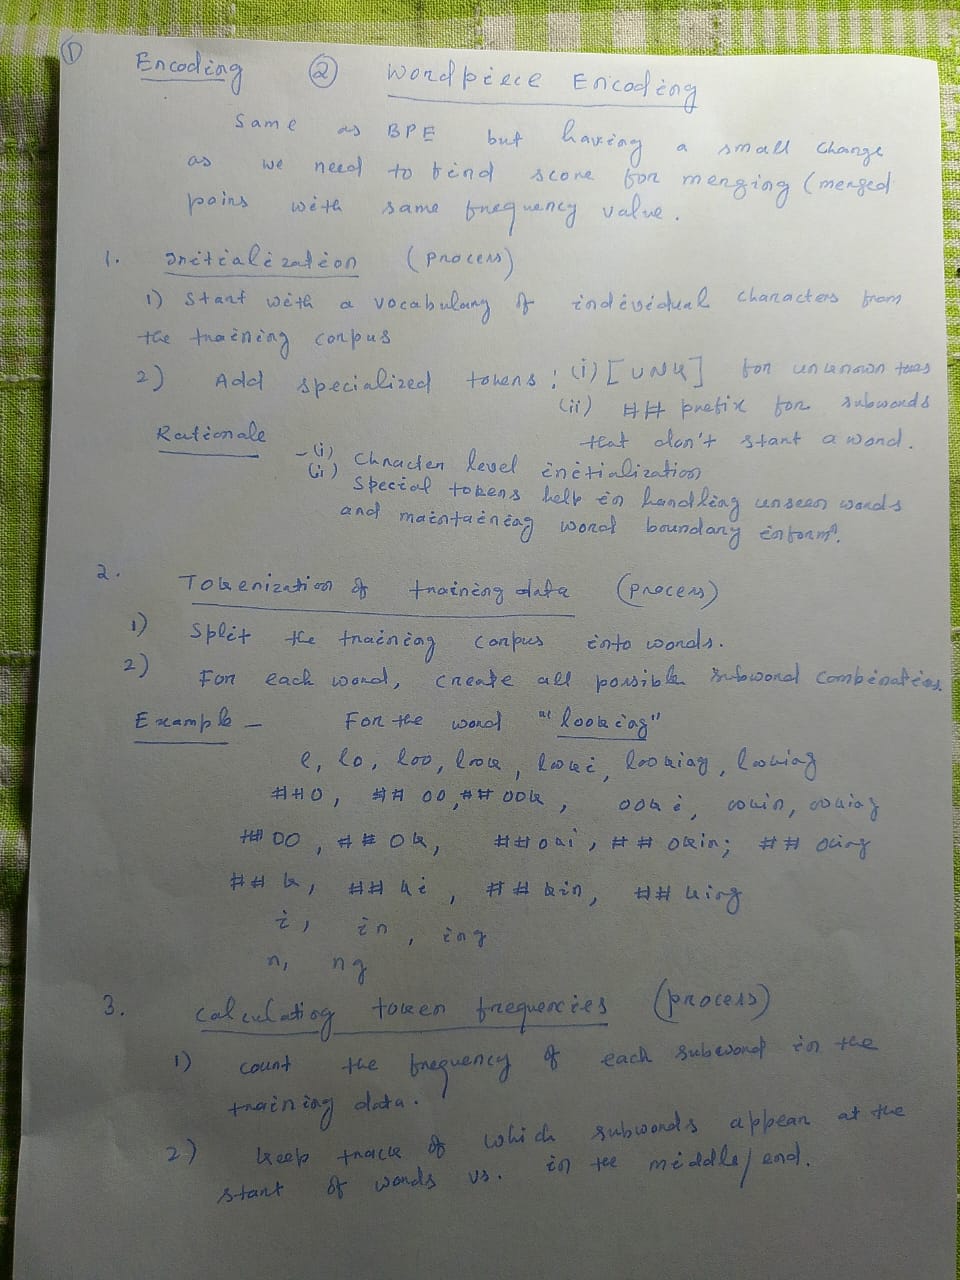 ① Encoding ② Wordpiece Encoding
Same as BPE but having a small change
as we need to find score for merging (merged
pairs with same frequency value.
1. Initialization (process)
1) Start with a vocabulary of individual characters from
the training corpus
2) Add specialized tokens : (i) [UNK] for unknown
(ii) ## prefix for subwords
that don't start a word.
Rationale
- (i) Chracter level initialization
(ii) Special tokens help in handling unseen words
and maintaining word boundary informⁿ.
2. Tokenization of training data (process)
1) Split the training corpus into words.
2) For each word, create all possible subword combinations.
Example - For the word "looking"
l, lo, loo, look, looki, looking, looking
##o, ## oo, ## ook, ooki, ookin, ooking
## oo, ## ok, ## oki, ## okin; ## oking
## k, ## ki, ## kin, ## king
i, in, ing
n, ng
3. Calculating token frequencies (process)
1) count the frequency of each subword in the
training data.
2) keep track of which subwords appear at the
start of words vs. in the middle/end.